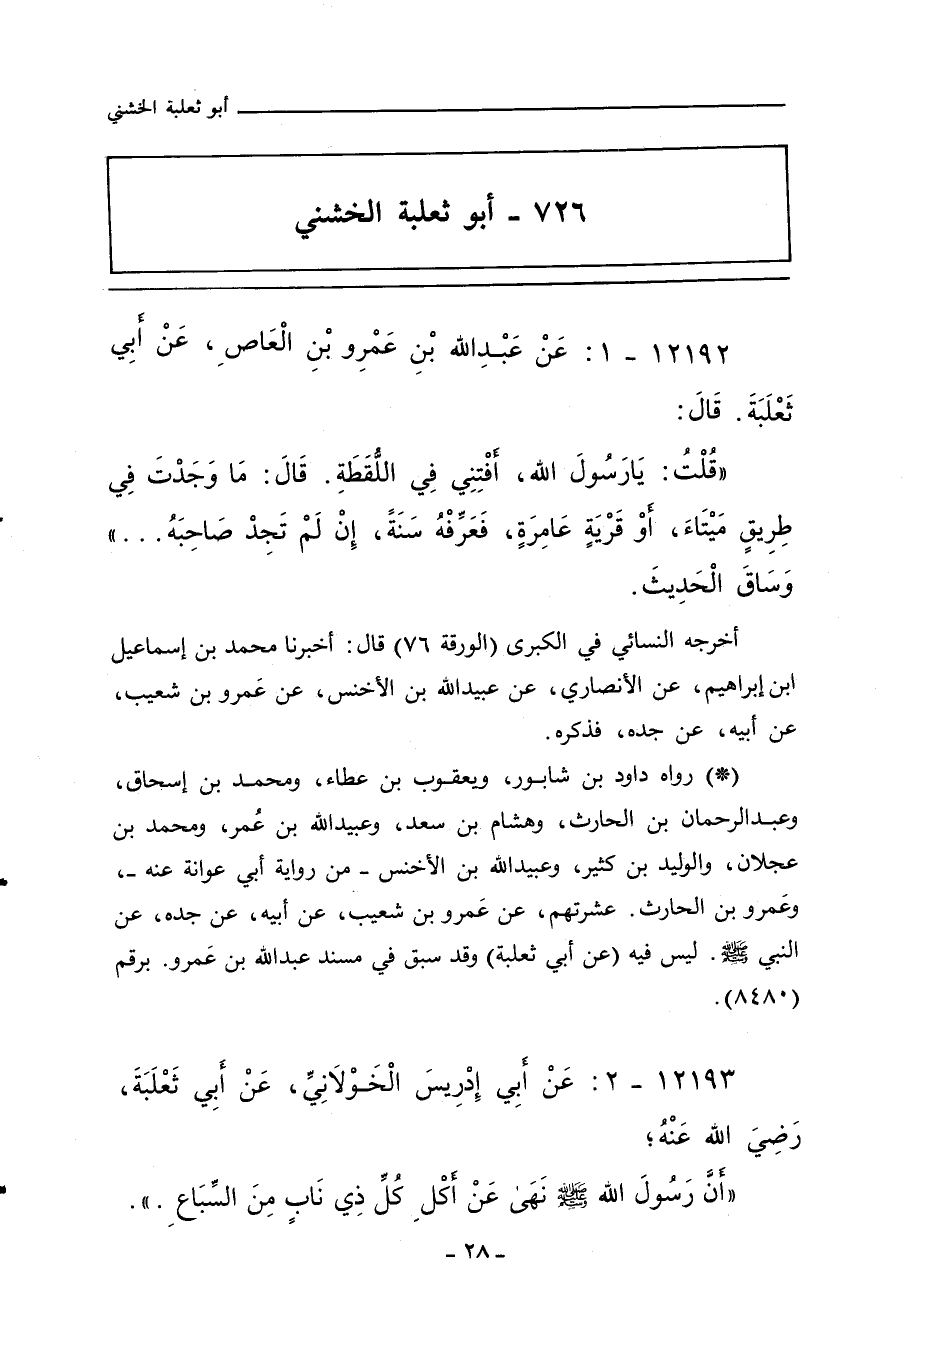 أبو ثعلبة الخشني
٧٢٦ - أبو ثعلبة الخشني
١٢١٩٢ - ١ : عَنْ عَبْدِالله بْنِ عَمْرِو بْنِ الْعَاصِ، عَنْ أَبِي
ثَعْلَبَةَ. قَالَ:
«قُلْتُ: يَارَسُولَ الله، أَفْتِنِي فِي اللُّقَطَةِ. قَالَ: مَا وَجَدْتَ فِي
طِرِيقٍ مَيْتَاءَ، أَوْ قَرْيَةٍ عَامِرَةٍ، فَعَرِّفْهُ سَنَةً، إِنْ لَمْ تَجِدْ صَاحِبَهُ...»
وَسَاقَ الْحَدِيثَ.
أخرجه النسائي في الكبرى (الورقة ٧٦) قال: أخبرنا محمد بن إسماعيل
ابن إبراهيم، عن الأنصاري، عن عبيدالله بن الأخنس، عن عَمرو بن شعيب،
عن أبيه، عن جده، فذكره.
(*) رواه داود بن شابور، ويعقوب بن عطاء، ومحمد بن إسحاق،
وعبدالرحمان بن الحارث، وهشام بن سعد، وعبيدالله بن عُمر، ومحمد بن
عجلان، والوليد بن كثير، وعبيدالله بن الأخنس - من رواية أبي عوانة عنه -،
وعَمرو بن الحارث. عشرتهم، عن عَمرو بن شعيب، عن أبيه، عن جده، عن
النبي ﷺ. ليس فيه (عن أبي ثعلبة) وقد سبق في مسند عبدالله بن عَمرو. برقم
(٨٤٨٠).
١٢١٩٣ - ٢ : عَنْ أَبِي إِدْرِيسَ الْخَوْلَانِيِّ، عَنْ أَبِي ثَعْلَبَةَ،
رَضِيَ الله عَنْهُ؛
«أَنَّ رَسُولَ الله ﷺ نَهَىٰ عَنْ أَكْلِ كُلِّ ذِي نَابٍ مِنَ السِّبَاعِ.».
- ٢٨ -